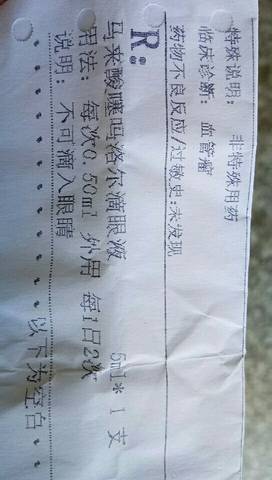 特殊说明： 非特殊用药
临床诊断：血管瘤
药物不良反应/过敏史:未发现
R:
马来酸噻吗洛尔滴眼液 5ml* 1 支
用法： 每次0.50ml 外用 每1日2次
说明： 不可滴入眼睛
以下为空白